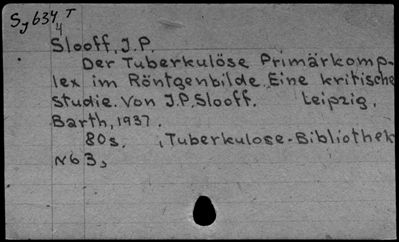 Sy634 T
4
Slooff, J.P.
Der Tuberkulöse Primärkomp-
lex im Röntgenbilde. Eine kritische
Studie. Von J.P. Slooff. Leipzig,
Barth, 1937.
80s. , Tuberkulose-Bibliothek
N63,